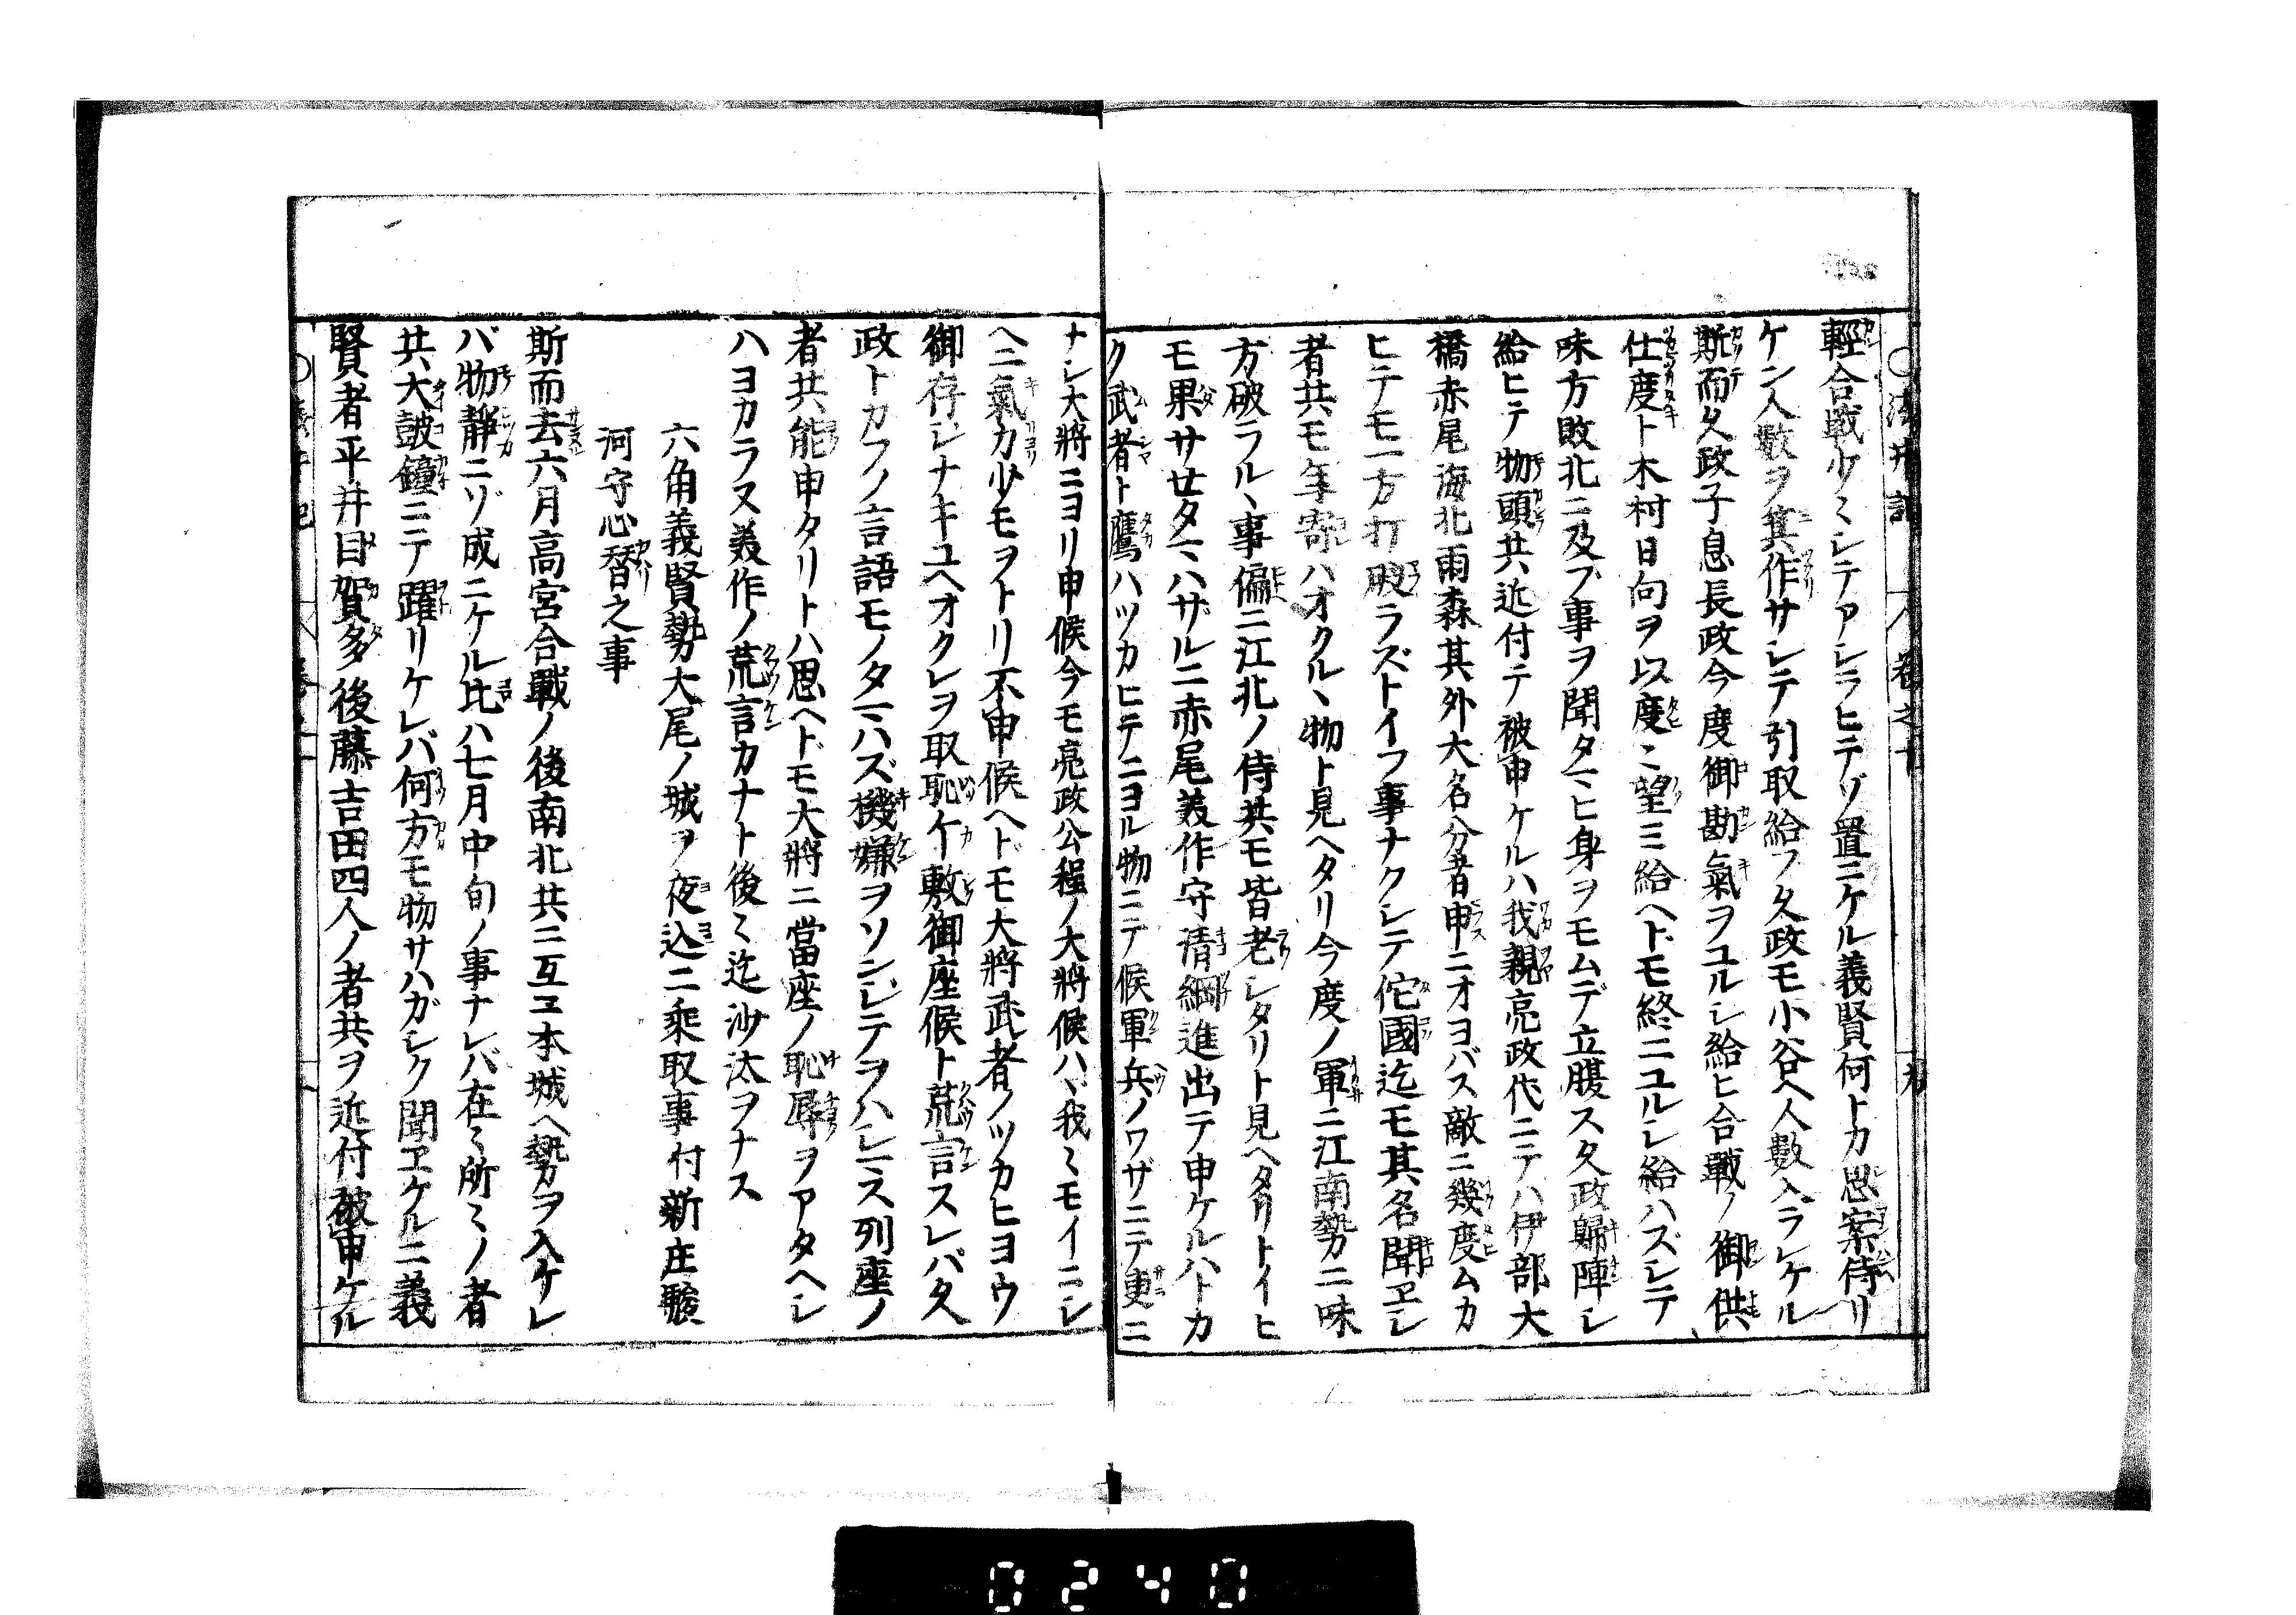 輕合戰少〻シテアシラヒテゾ置ニケル義賢何トカ思案侍リ
ケン人數ヲ箕作サシテ引取給フ久政モ小谷ヘ人數入ラレケル
斯而久政子息長政今度御勘氣ヲユルシ給ヒ合戰ノ御供
仕度ト木村日向ヲ以度〻望ミ給ヘドモ終ニユルシ給ハズシテ
味方敗北ニ及ブ事ヲ聞タマヒ身ヲモムデ立腹ス久政歸陣シ
給ヒテ物頭共近付テ被申ケルハ我親亮政代ニテハ伊部大
橋赤尾海北雨森其外大名分者申ニオヨバス敵ニ幾度ムカ
ヒテモ一方打破ラズトイフ事ナクシテ佗國迄モ其名聞ヱシ
者共モ年寄ハオクルヽ物ト見ヘタリ今度ノ軍ニ江南勢ニ味
方破ラルヽ事偏ニ江北ノ侍共モ皆老シタリト見ヘタリトイヒ
モ果サセタマハザルニ赤尾美作守清綱進出テ申ケルハトカ
ク武者ト鷹ハツカヒテニヨル物ニテ候軍兵ノワザニテ更ニ
ナシ大將ニヨリ申候今モ亮政公程ノ大將候ハヽ我〻モイニシ
ヘニ氣カ少モヲトリ不申候ヘドモ大將武者ノツカヒヨウ
御存シナキユヘオクレヲ取恥ケ敷御座候ト荒言スレバ久
政トカフノ言語モノタマハズ機嫌ヲソンジテヲハシマス列座ノ
者共能申タリトハ思ヘドモ大將ニ當座ノ恥辱ヲアタヘシ
ハヨカラヌ美作ノ荒言カナト後〻迄沙汰ヲナス
六角義賢勢大尾ノ城ヲ夜込ニ乘取事付新庄駿
河守心替之事
斯而去六月高宮合戰ノ後南北共ニ互ヱ本城ヘ勢ヲ入ケレ
バ物靜ニゾ成ニケル比ハ七月中旬ノ事ナレバ在〻所〻ノ者
共大皷鐘ニテ躍リケレバ何方モ物サハガシク聞ヱケルニ義
賢者平井目賀多後藤吉田四人ノ者共ヲ近付被申ケル
0240